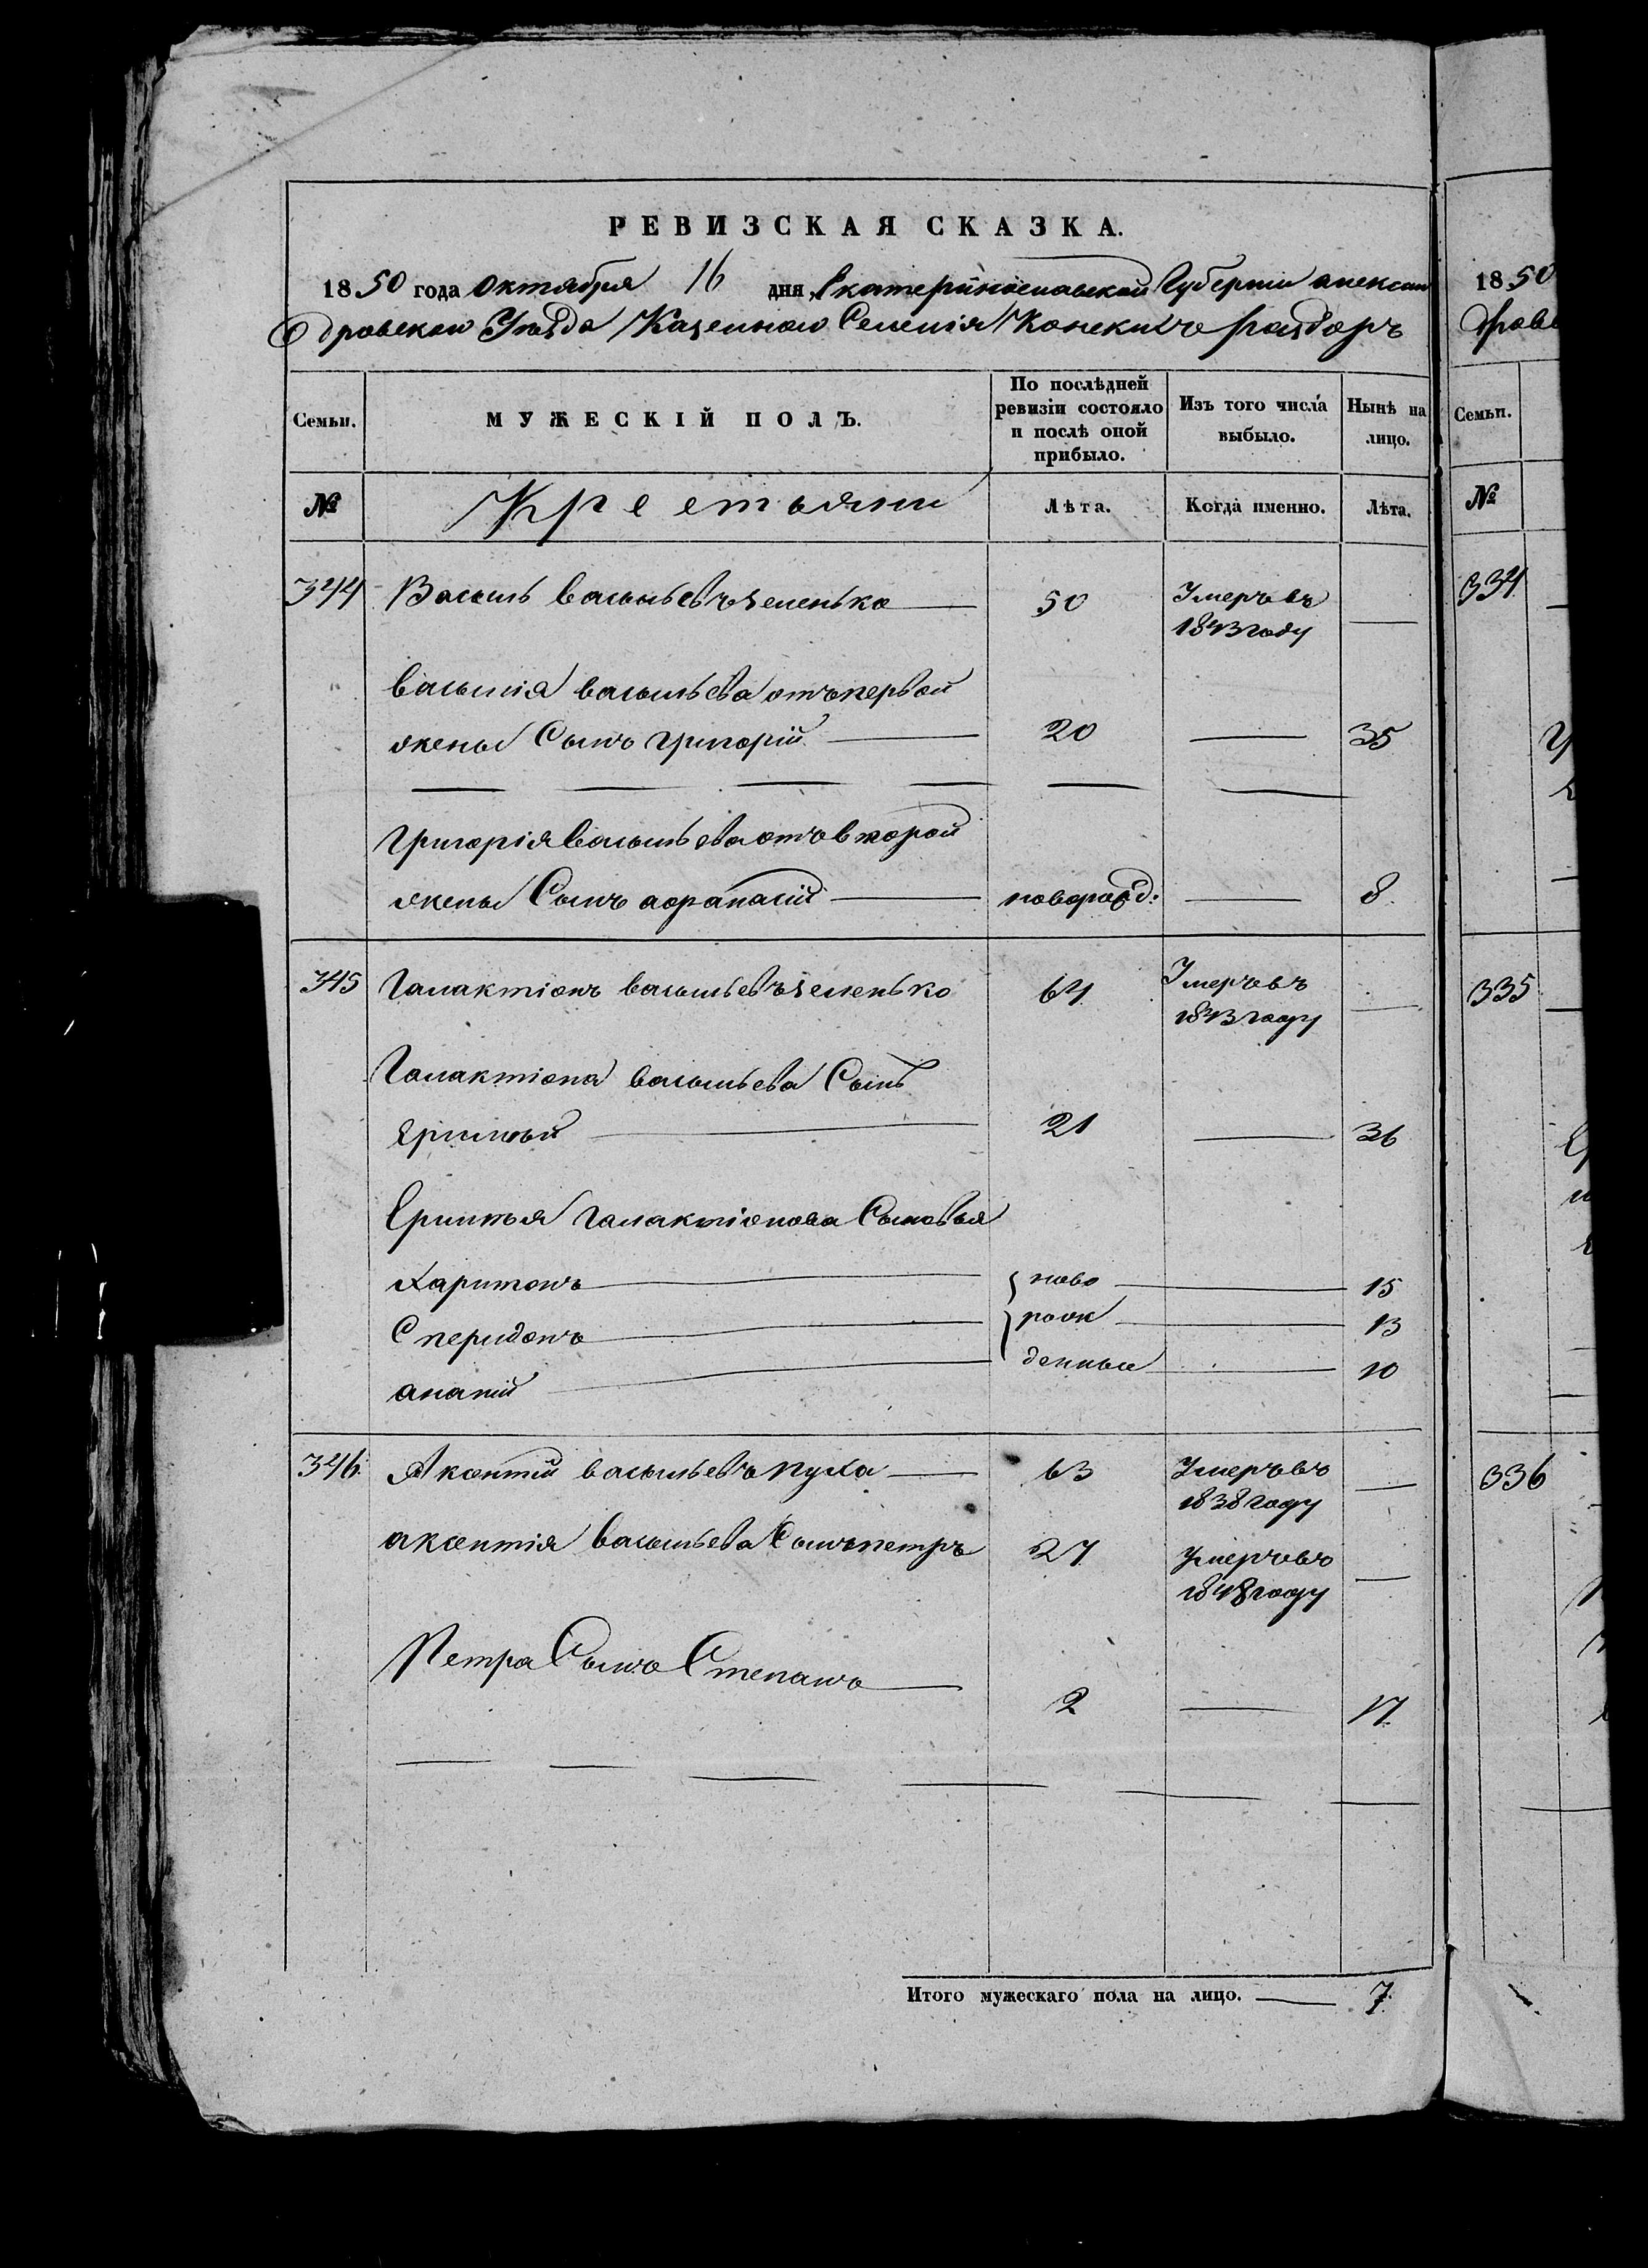 РЕВИЗСКАЯ СКАЗКА.
1850 года Октября 16 дня Екатеринославской Губернии алексан
дровскаго Уѣзда Казеннаго Селенія Конскихъ раздоръ
Семьи.
МУЖЕСКІЙ ПОЛЪ.
По послѣдней ревизіи состояло и послѣ оной прибыло.
Изъ того числа выбыло.
Нынѣ на лицо.
№ Крестьяни Лѣта. Когда именно. Лѣта.
344 Василь васильевъ Зеленько 50 Умеръ въ
1843 году
василія васильева отъ первой
жены Сынъ григорій 20 35
григорія васильева отъ второй
жены Сынъ афанасій новорожд: 8
345 Галактіонъ васильевъ Зеленько 64 Умеръ въ
1843 году
Галактіона васильева Сынъ
Ермолай 21 36
Галактіонова Сыновья
Харитонъ ново 15
Сперидонъ рож 13
ананій денные 10
346 Аксентій васильевъ пуха 63 Умеръ въ
1838 году
аксентія васильева Сынъ петръ 27 Умеръ въ
1848 году
Петра Сынъ Степанъ 2 17
Итого мужескаго пола на лицо. 7
1850
Семьи.
№
334
335
336